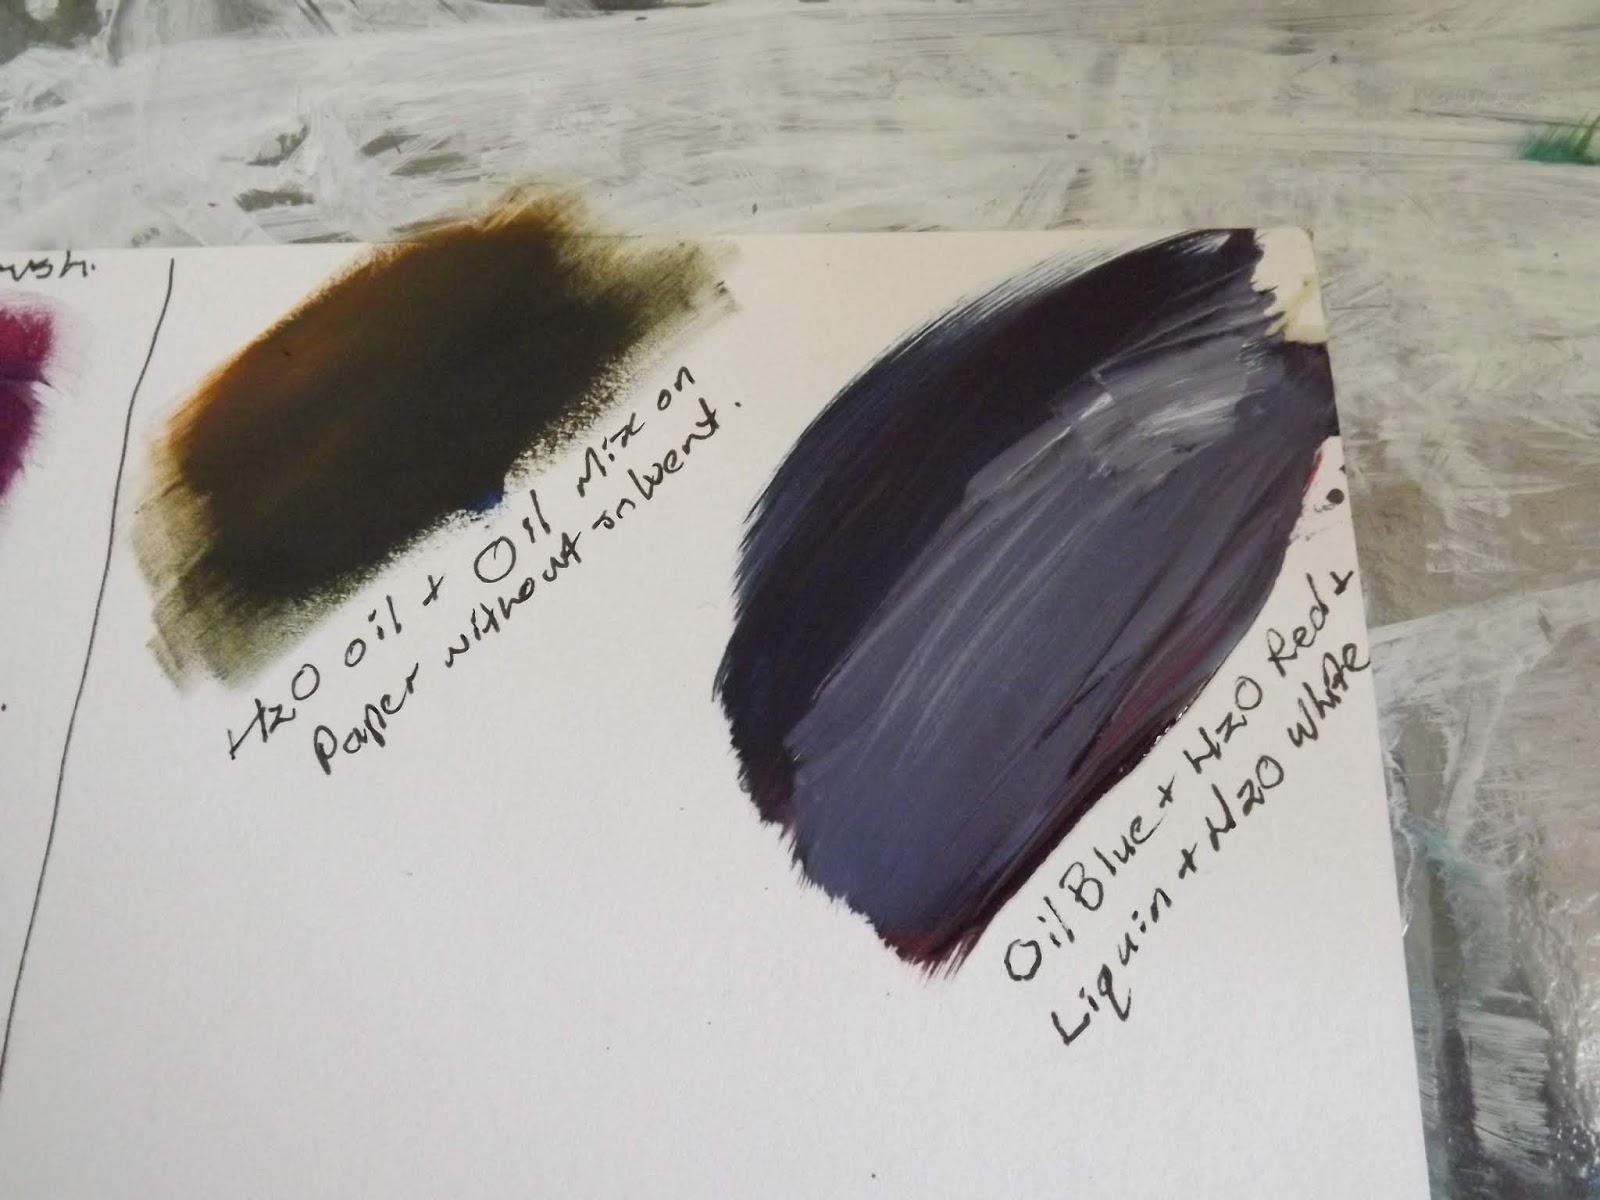 H2O oil + Oil Mix on
Paper without solvent.
Oil Blue + H2O Red +
Liquin + H2O White